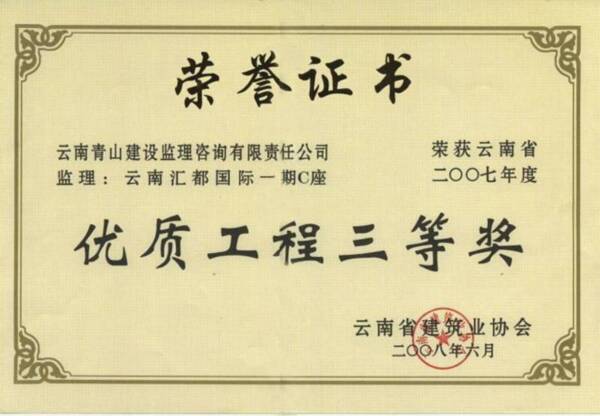 荣誉证书
云南青山建设监理咨询有限责任公司
监理：云南汇都国际一期C座
荣获云南省
二〇〇七年度
优质工程三等奖
云南省建筑业协会
二〇〇八年六月